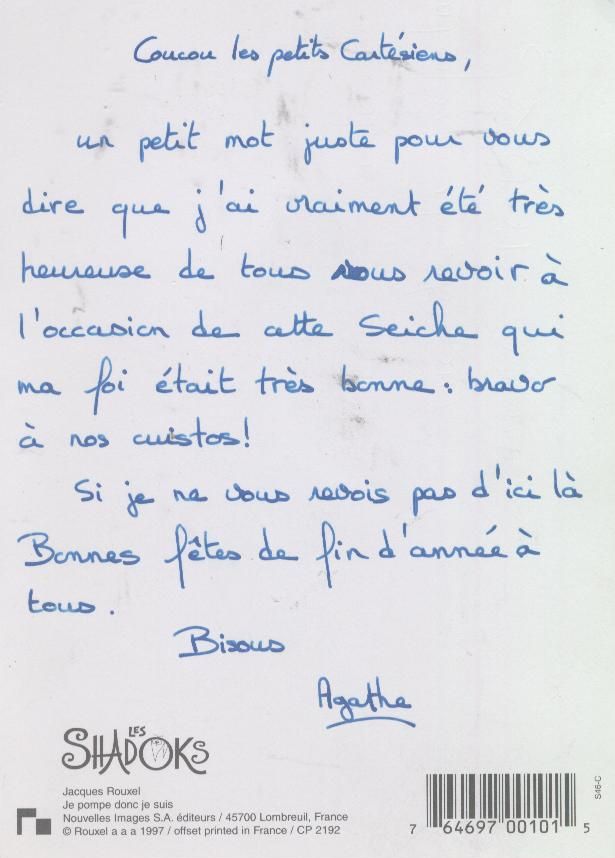 Coucou les petits Cartésiens,
un petit mot juste pour vous
dire que j'ai vraiment été très
heureuse de tous vous revoir à
l'occasion de cette Seiche qui
ma foi était très bonne : bravo
à nos cuistos!
Si je ne vous revois pas d'ici là
Bonnes fêtes de fin d'année à
tous.
Bisous
Agathe
LES
SHADOKS
Jacques Rouxel
Je pompe donc je suis
Nouvelles Images S.A. éditeurs / 45700 Lombreuil, France
© Rouxel a a a 1997 / offset printed in France / CP 2192
7 64697 00101 5
S46-C